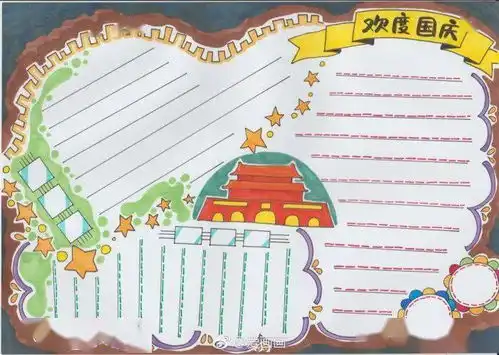 欢度国庆